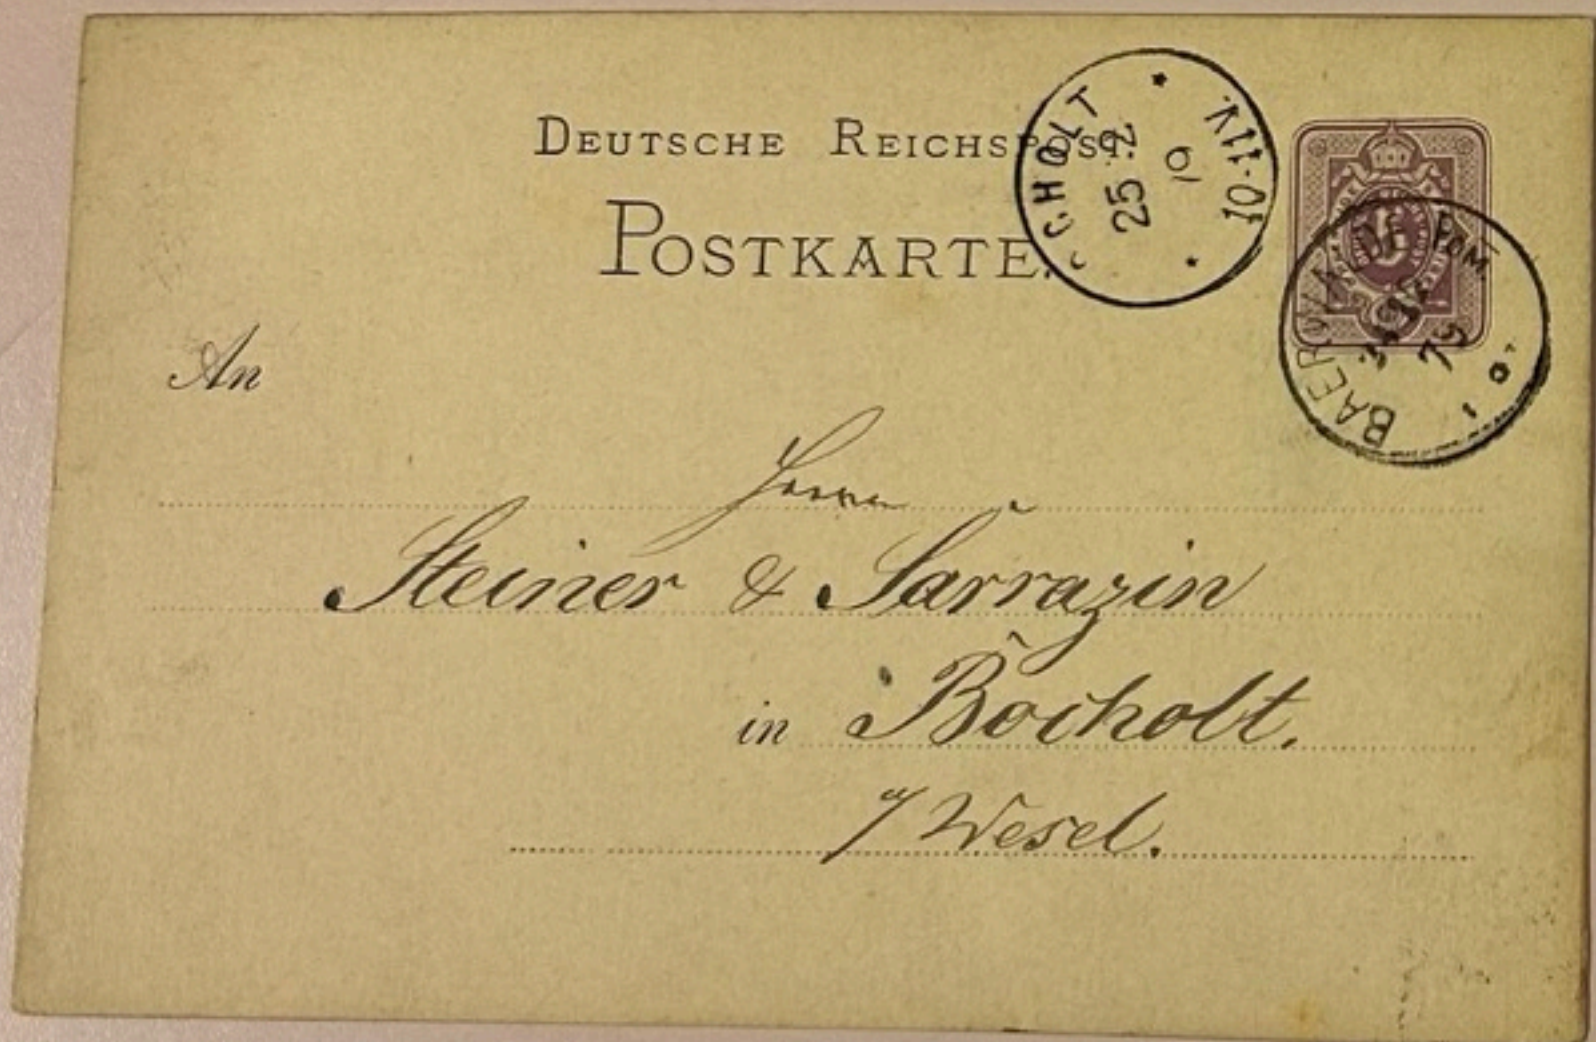 DEUTSCHE REICHSPOST.
POSTKARTE.
CHOLT
25 2
10-11V.
BAERWALDE POM.
79
An
Herren
Steiner & Sarrazin
in Bocholt.
a/ Wesel.